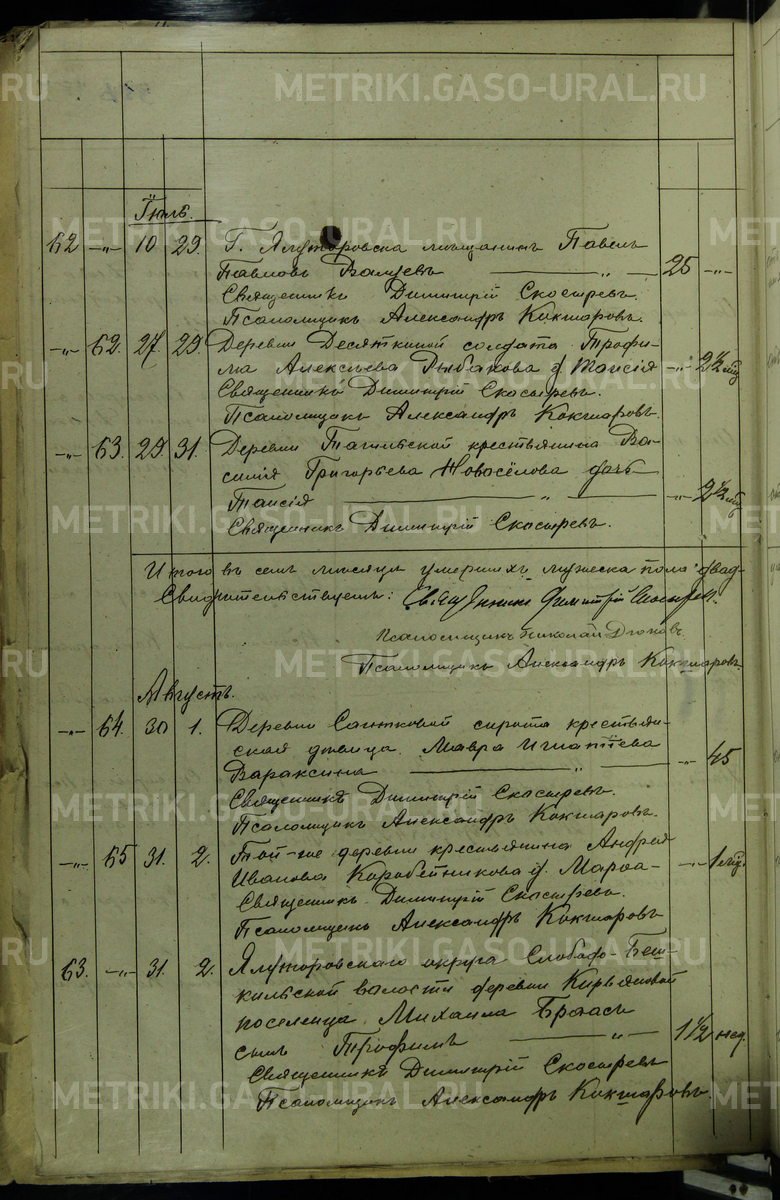 Іюль.
62 -„- 10 29. Г. Ялуторовска мѣщанинъ Павелъ
Павловъ -„- 25 -„-
Священникъ Димитрій Скосыревъ.
Псаломщикъ Александръ Кокшаровъ.
-„- 62. 27. 29. Деревни Десяткиной солдата Трофи-
ма Алексѣева Рыбакова д. Таисія -„- 2½ мѣс
Священникъ Димитрій Скосыревъ.
Псаломщикъ Александръ Кокшаровъ.
-„- 63. 29 31. Деревни Тагильской крестьянина Ва-
силія Григорьева Новосёлова дочь
Таисія -„- -„- 2½ мѣс
Священникъ Димитрій Скосыревъ.
Итого въ семъ мѣсяцѣ умершихъ мужеска пола двад-
Свидѣтельствуемъ: Священникъ Димитрій Скосыревъ.
Псаломщикъ Николай
Псаломщикъ Александръ Кокшаровъ.
Августъ.
-„- 64. 30 1. Деревни сирота крестьян-
ская дѣвица Мавра Игнатіева
Вараксина -„- -„- 45
Священникъ Димитрій Скосыревъ.
Псаломщикъ Александръ Кокшаровъ.
-„- 65 31. 2. Той-же деревни крестьянина Андрея
Иванова Коробейникова д. Марѳа -„- 1 мѣс.
Священникъ Димитрій Скосыревъ.
Псаломщикъ Александръ Кокшаровъ
63. -„- 31. 2. Ялуторовскаго округа Слободо-Беш-
кильской волости деревни
поселенца Михаила
сынъ Трофимъ -„- 1½ нед.
Священникъ Димитрій Скосыревъ
Псаломщикъ Александръ Кокшаровъ.
METRIKI.GASO-URAL.RU